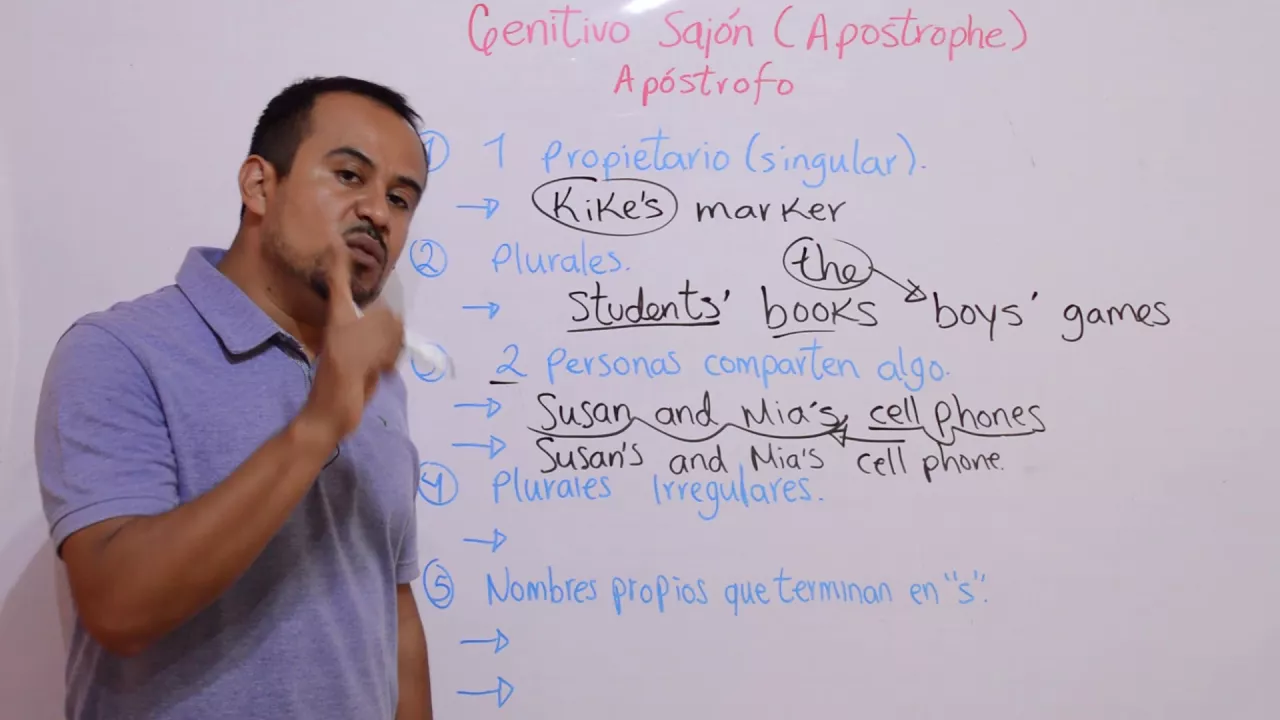 Genitivo Sajón (Apostrophe)
Apóstrofo
1 1 Propietario (singular).
→ Kike's marker
2 Plurales.
the
→ Students' books boys' games
3 2 Personas comparten algo.
→ Susan and Mia's cell phones
→ Susan's and Mia's cell phone.
4 Plurales Irregulares.
→
5 Nombres propios que terminan en "s".
→
→